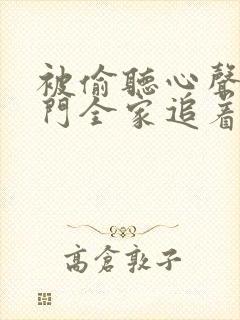 被偷聽心聲
門全家追着
高倉敦子